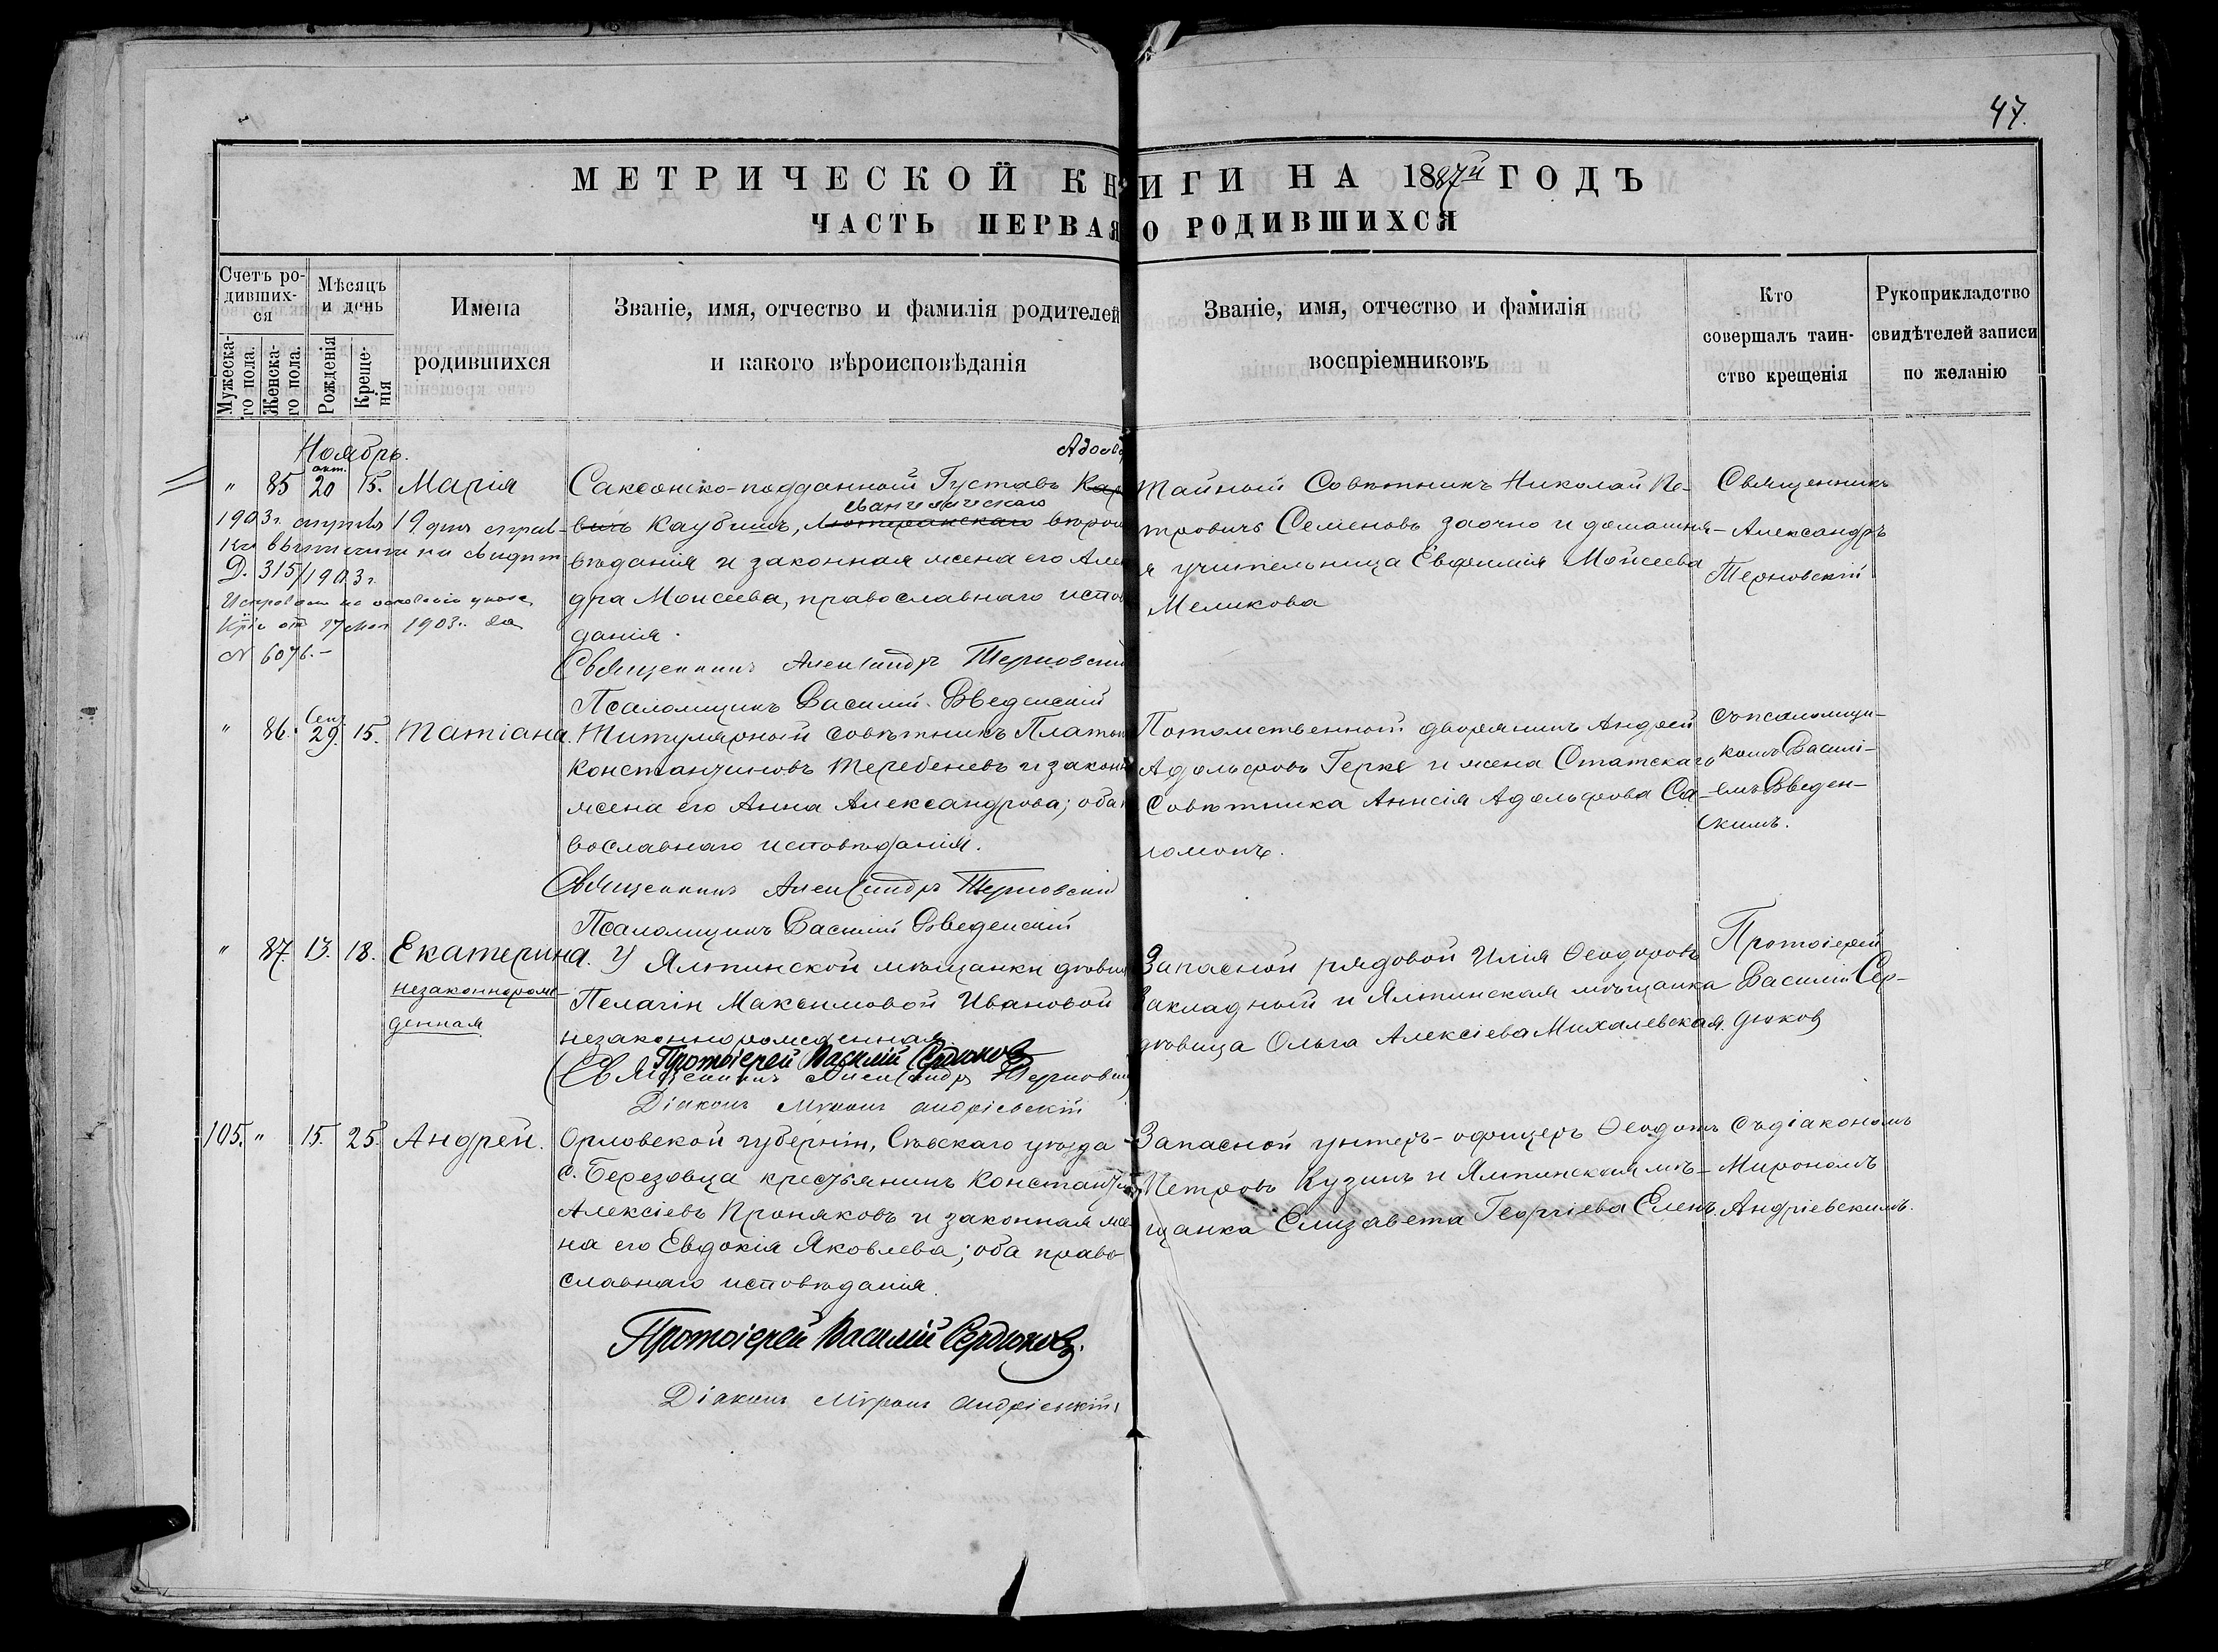 47.
МЕТРИЧЕСКОЙ КНИГИ НА 1887й ГОДЪ
ЧАСТЬ ПЕРВАЯ О РОДИВШИХСЯ
Счетъ ро-
дивших-
ся
Мужеска-
го пола.
Женска-
го пола.
Мѣсяцъ
и день
Рожденія
Креще-
нія
Имена
родившихся
Званіе, имя, отчество и фамилія родителей
и какого вѣроисповѣданія
Званіе, имя, отчество и фамилія
воспріемниковъ
Кто
совершалъ таин-
ство крещенія
Рукоприкладство
свидѣтелей записи
по желанію
Ноябрь.
" 85 окт. 20 15. Марія
1903г. 19 дня
Д. 315/1903г.
1903г. за
N 6076.-
Саксонско-подданный Густавъ
евангелическаго
Каубишъ, Лютеранскаго вѣроис
вѣданія и законная жена его Алек
дра Моисеева, православнаго испов
данія.
Священникъ Александръ Терновскій
Псаломщикъ Василій Введенскій
Тайный Совѣтникъ Николай Пе-
тровичъ Семеновъ заочно и домашня-
я учительница Евфимія Мойсеева
Меликова
Священникъ
Александръ
Терновскій
" 86. Сен. 29. 15. Татіана.
Титулярный совѣтникъ Платонъ
Константиновъ Теребеневъ и законн
жена его Анна Александрова; оба
вославнаго исповѣданія.
Священникъ Александръ Терновскій
Псаломщикъ Василій Введенскій
Потомственной дворянинъ Андрей
Адольфовъ Герке и жена Статскаго
Совѣтника Анисія Адольфова Са-
ломонъ.
съ псаломщи-
комъ Васи́лі-
емъ Введен-
скимъ.
" 87. 13. 18. Екатерина.
незаконнорож-
денная
У Ялтинской мѣщанки дѣвиц
Пелагіи Максимовой Ивановой
незаконнорожденная
Протоіерей Василій Сердюковъ
Священникъ Александръ Терновскій
Діаконъ Миронъ Андріевскій
Запасной рядовой Илія Ѳеодоровъ
Закладный и Ялтинская мѣщанка
дѣвица Ольга Алексіева Михалевская.
Протоіерей
Василій Сер-
дюковъ
105. " 15. 25. Андрей.
Орловской губерніи, Сѣвскаго уѣзда
с. Березовца крестьянинъ Константинъ
Алексіевъ Проняковъ и законная же
на его Евдокія Яковлева; оба право
славнаго исповѣданія.
Протоіерей Василій Сердюковъ.
Діаконъ Миронъ Андріевскій
Запасной унтеръ-офицеръ Ѳеодотъ
Петровъ Кузинъ и Ялтинская мѣ-
щанка Елизавета Георгіева Еленъ.
съ діакономъ
Мирономъ
Андріевскимъ.